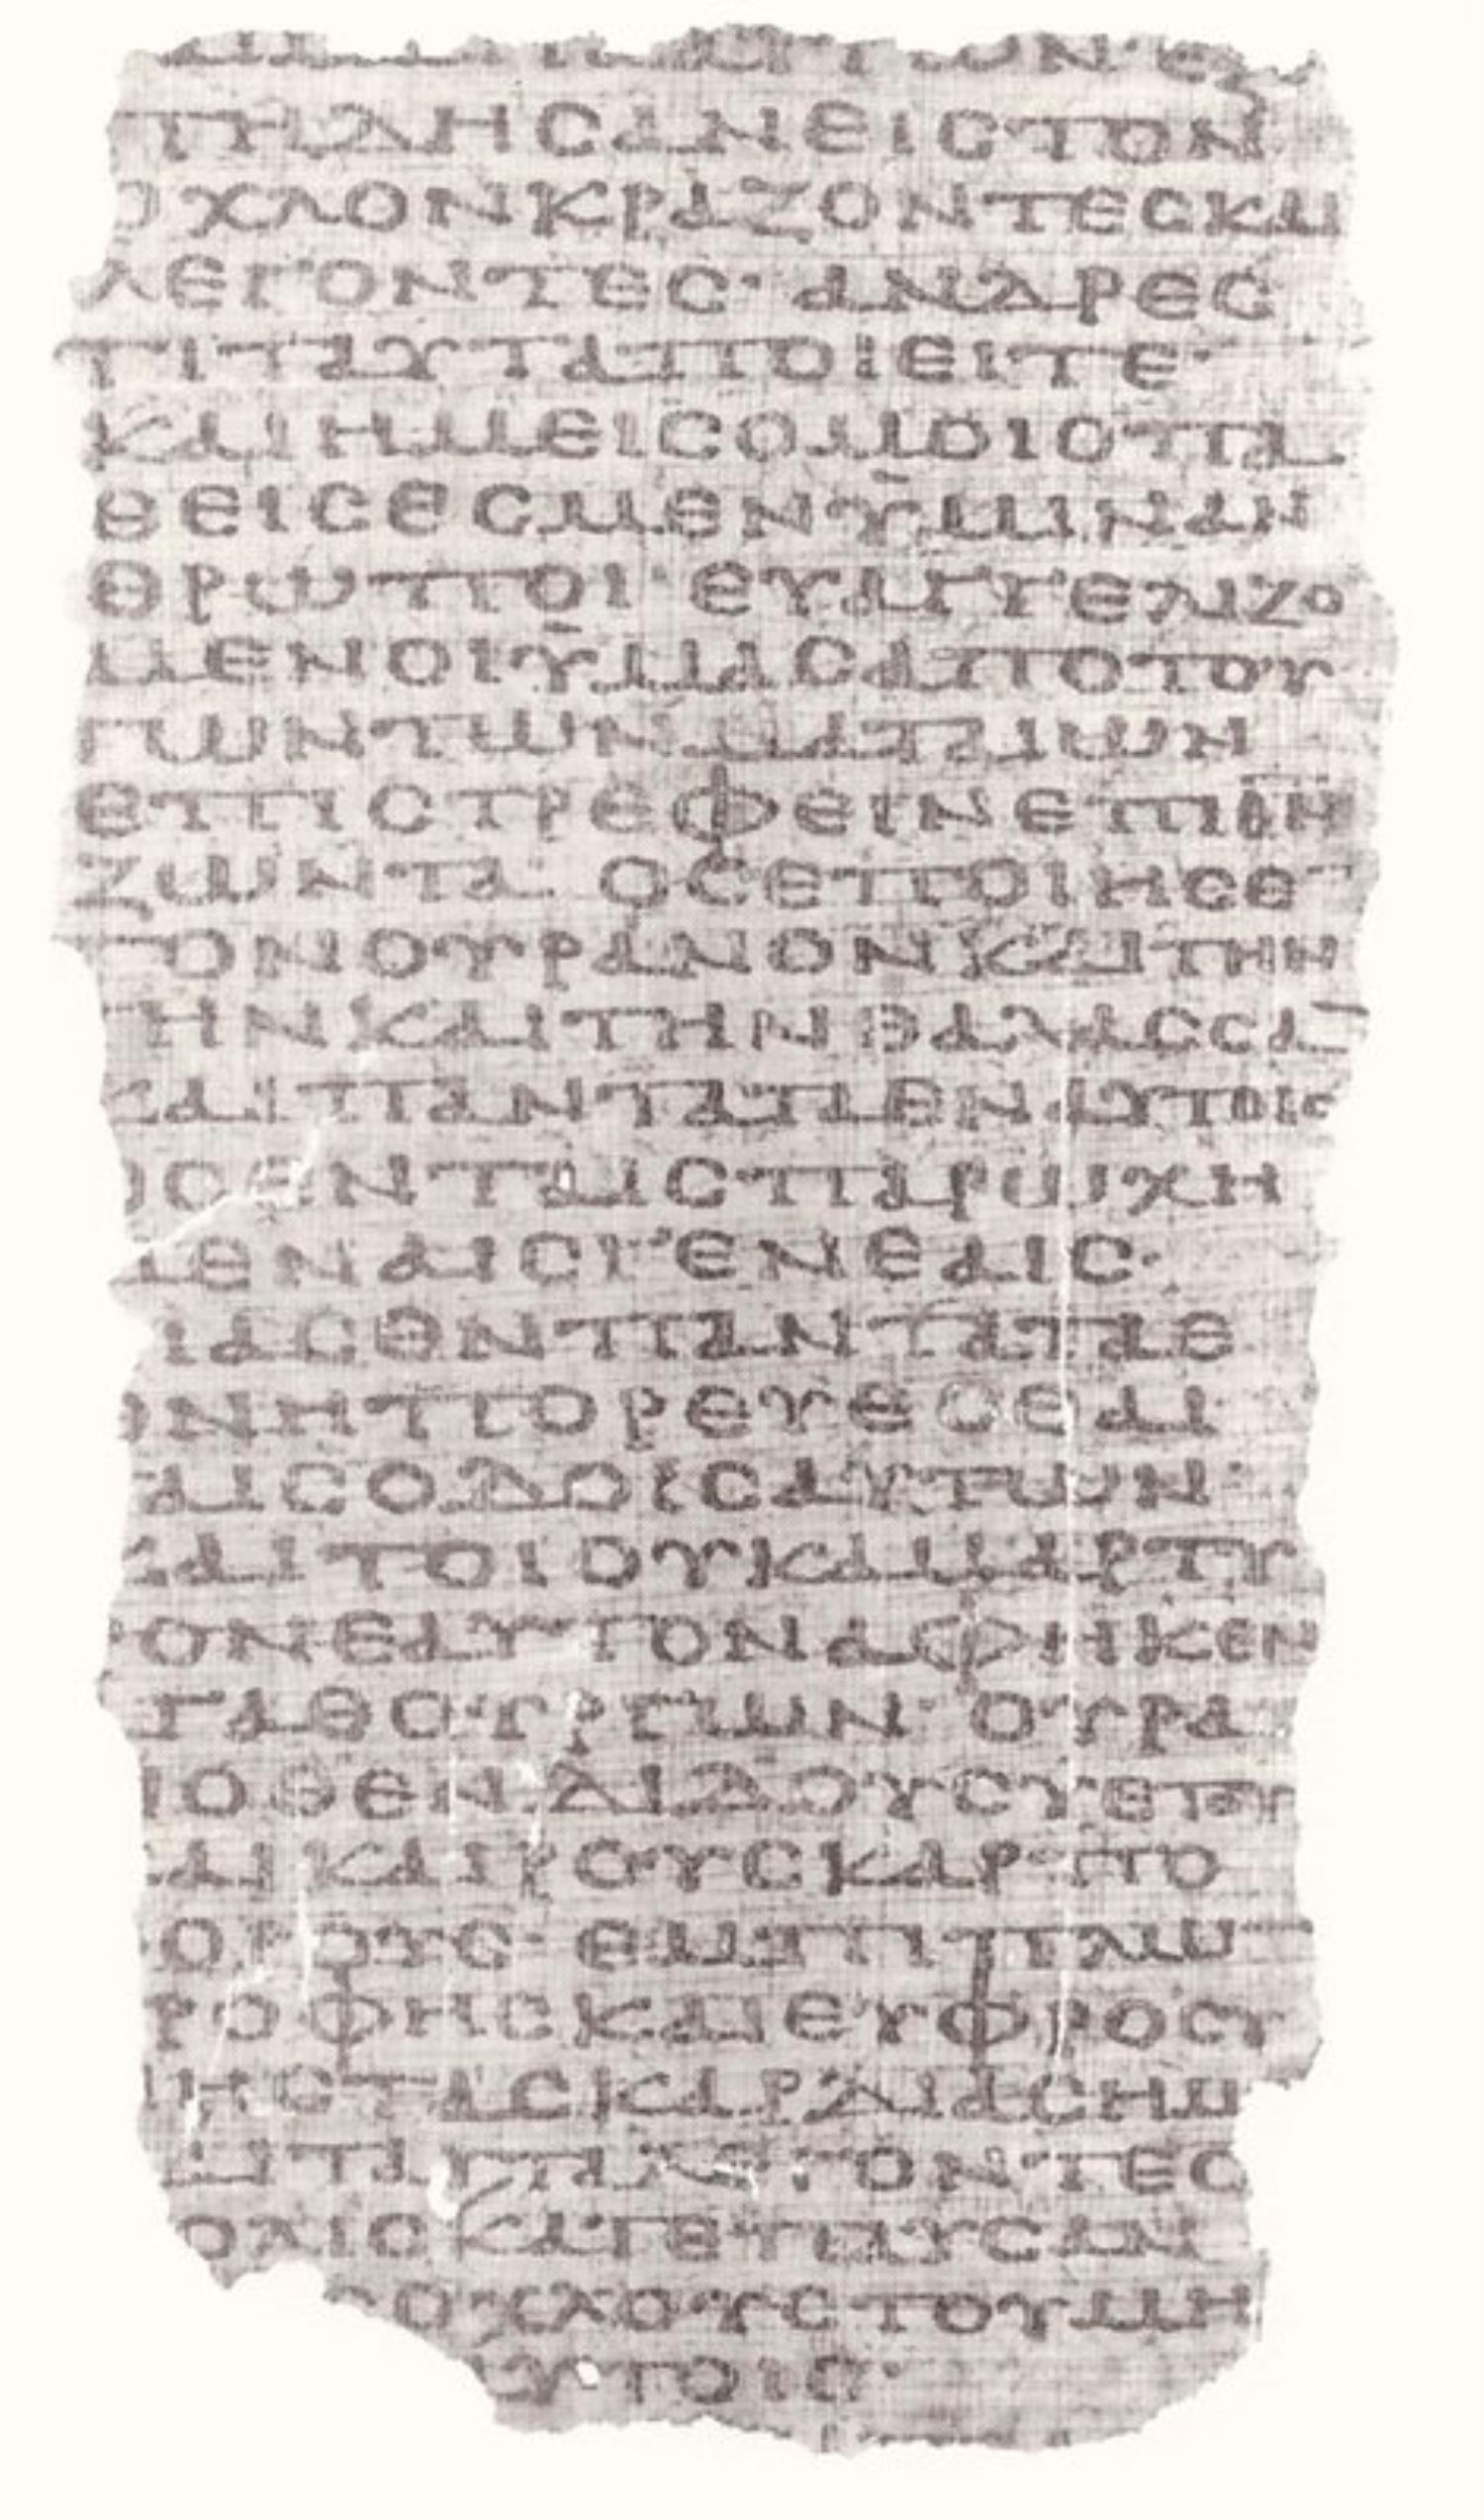 ΤΩΝ ΕΞ
ΠΗΔΗCΑΝ ΕΙC ΤΟΝ
ΟΧΛΟΝ ΚΡΑΖΟΝΤΕC ΚΑΙ
ΛΕΓΟΝΤΕC· ΑΝΔΡΕC
ΤΙ ΤΑΥΤΑ ΠΟΙΕΙΤΕ·
ΚΑΙ ΗΜΕΙC ΟΜΟΙΟΠΑ
ΘΕΙC ΕCΜΕΝ ΫΜΙΝ ΑΝ
ΘΡΩΠΟΙ· ΕΥΑΓΓΕΛΙΖΟ
ΜΕΝΟΙ ΫΜΑC ΑΠΟ ΤΟΥ
ΤΩΝ ΤΩΝ ΜΑΤΑΙΩΝ
ΕΠΙCΤΡΕΦΕΙΝ ΕΠΙ Θ̅Ν̅
ΖΩΝΤΑ· ΟC ΕΠΟΙΗCΕ̅
ΤΟΝ ΟΥΡΑΝΟΝ ΚΑΙ ΤΗΝ
ΓΗΝ ΚΑΙ ΤΗΝ ΘΑΛΑCCΑ̅
ΚΑΙ ΠΑΝΤΑ ΤΑ ΕΝ ΑΥΤΟΙC
ΟC ΕΝ ΤΑΙC ΠΑΡΩΧΗ
ΜΕΝΑΙC ΓΕΝΕΑΙC·
ΙΑCΕΝ ΠΑΝΤΑ ΤΑ Ε
ΘΝΗ ΠΟΡΕΥΕCΘΑΙ
ΑΙC ΟΔΟΙC ΑΥΤΩΝ·
ΚΑΙΤΟΙ ΟΥΚ ΑΜΑΡΤΥ
ΡΟΝ ΕΑΥΤΟΝ ΑΦΗΚΕΝ
ΓΑΘΟΥΡΓΩΝ· ΟΥΡΑ
ΝΟΘΕΝ ΔΙΔΟΥC ΥΕΤΟΥ
ΑΙ ΚΑΙΡΟΥC ΚΑΡΠΟ
ΟΡΟΥC· ΕΜΠΙΠΛΩ̅
ΡΟΦΗC ΚΑΙ ΕΥΦΡΟCΥ
ΝΗC ΤΑC ΚΑΡΔΙΑC ΗΜ
ΑΙ ΤΑΥΤΑ ΛΕΓΟΝΤΕC
ΟΛΙC ΚΑΤΕΠΑΥCΑΝ
ΟΧΛΟΥC ΤΟΥ ΜΗ
ΑΥΤΟΙC·